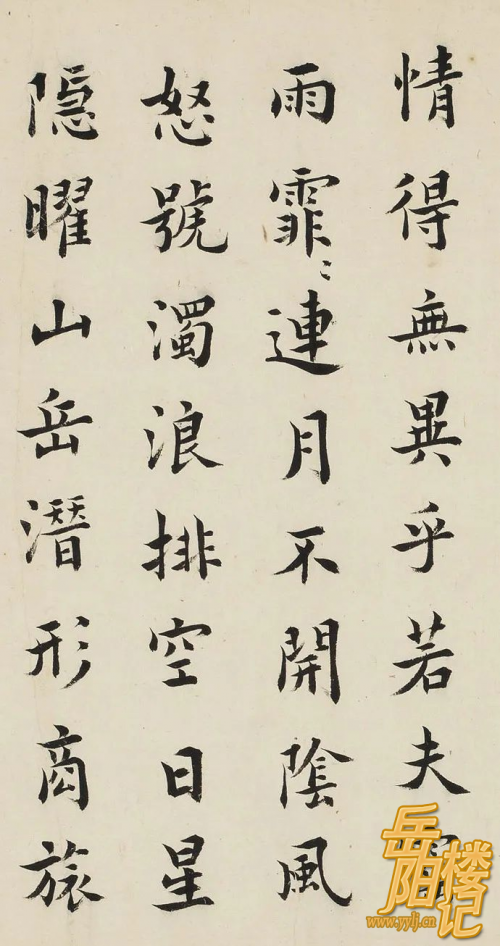 情得無異乎若夫
雨霏〻連月不開陰風
怒號濁浪排空日星
隐曜山岳潛形商旅
岳阳楼记
www.yylj.cn